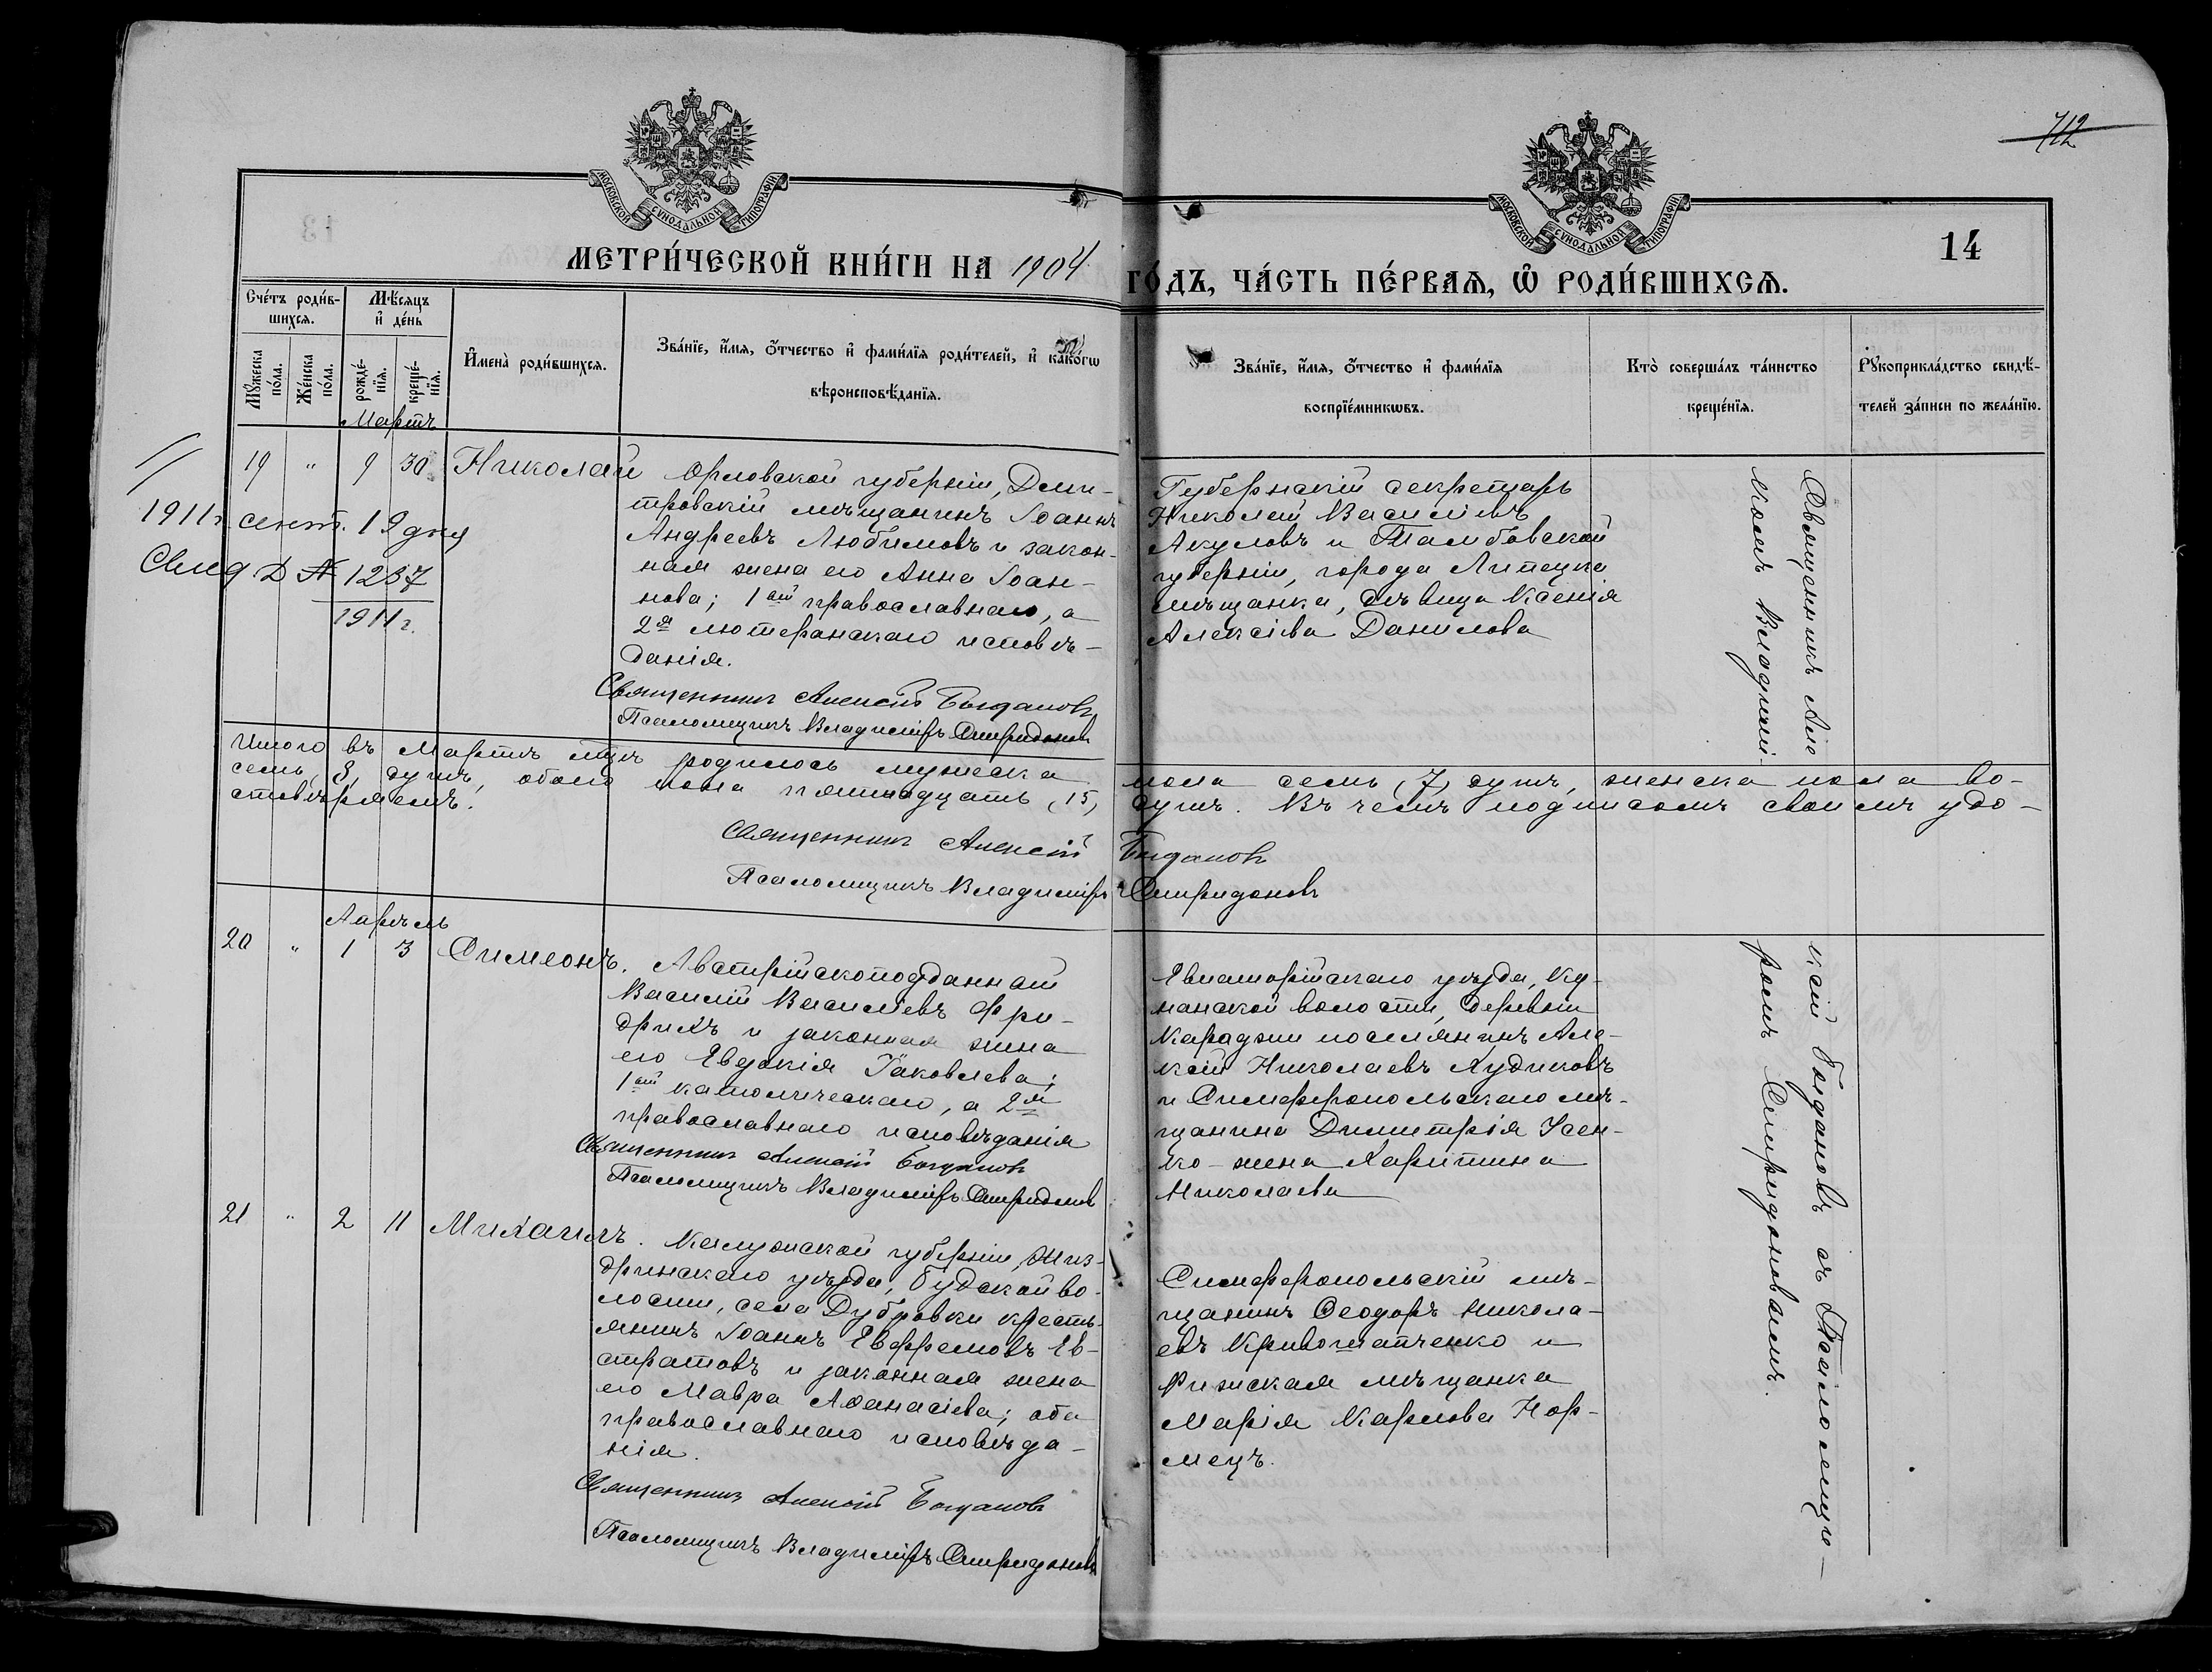 712
МОСКОВСКОЙ СѴНОДАЛЬНОЙ ТИПОГРАФІИ
МОСКОВСКОЙ СѴНОДАЛЬНОЙ ТИПОГРАФІИ
14
МЕТРИ́ЧЕСКОЙ КНИ́ГИ НА 1904 ГО́ДЪ, ЧА́СТЬ ПЕ́РВАѦ, Ѡ҆ РОДИ́ВШИХСѦ.
Сче́тъ роди́в-
шихсѧ.
Мѣ́сяцъ
и҆ де́нь
Мꙋ́жеска
по́ла.
Же́нска
по́ла.
рожде́-
нїѧ.
креще́-
нїѧ.
И҆мена̀ роди́вшихсѧ.
Зва́нїе, и҆́мѧ, ѻ҆́тчество и҆ фами́лїѧ роди́телей, и҆ како́гѡ
вѣроисповѣ́данїѧ.
Зва́нїе, и҆́мѧ, ѻ҆́тчество и҆ фами́лїѧ
воспрїе́мникѡвъ.
Кто̀ соверша́лъ та́инство
креще́нїѧ.
Рꙋкоприкла́дство свидѣ́-
телей за́писи по жела́нїю.
Мартъ
19 " 9 30 Николай
Орловской губерніи, Дми-
тровскій мѣщанинъ Іоаннъ
Андреевъ Любимовъ и закон-
ная жена его Анна Іоан-
нова; 1ый православнаго, а
2я лютеранскаго исповѣ-
данія.
Священникъ Алексій Богдановъ
Псаломщикъ Владиміръ Спиридоновъ
1911 г. сент. 19 дня
Свид. № 1237
1911 г.
Губернскій секретарь
Николай Василіевъ
Акуловъ и Тамбовской
губерніи, города Липецка
мѣщанка, дѣвица Ксенія
Алексіева Данилова
Священникъ Але
комъ Владимі-
Итого въ Мартѣ мцѣ родилось мужеска пола семь (7) душъ, женска пола во-
семь (8) душъ, обоего пола пятнадцать (15) душъ. Въ чемъ подписомъ своимъ удо-
стовѣряемъ.
Священникъ Алексій Богдановъ
Псаломщикъ Владиміръ Спиридоновъ
Апрѣль
20 " 1 3 Симеонъ.
Австрійскоподданный
Василій Василіевъ Фри-
дрихъ и законная жена
его Евдокія Іаковлева;
1ый католическаго, а 2я
православнаго исповѣданія
Священникъ Алексій Богдановъ
Псаломщикъ Владиміръ Спиридоновъ
Евпаторійскаго уѣзда, Ку-
нанской волости, деревни
Караджи поселянинъ Але-
ксій Николаевъ Худиковъ
и Симферопольскаго мѣ-
щанина Димитрія Усен-
ко - жена Харитина
Николаева
ксій Богдановъ съ Псаломщи-
ромъ Спиридоновымъ.
21 " 2 11 Михаилъ.
Калужской губерніи, Жиз-
дринскаго уѣзда, Будской во-
лости, села Дубровки кресть-
янинъ Іоаннъ Евфремовъ Ев-
стратовъ и законная жена
его Мавра Аѳанасіева; оба
православнаго исповѣда-
нія.
Священникъ Алексій Богдановъ
Псаломщикъ Владиміръ Спиридоновъ
Симферопольскій мѣ-
щанинъ Ѳеодоръ Никола-
евъ Кривошапченко и
Рижская мѣщанка
Марія Карлова Нор-
мецъ.